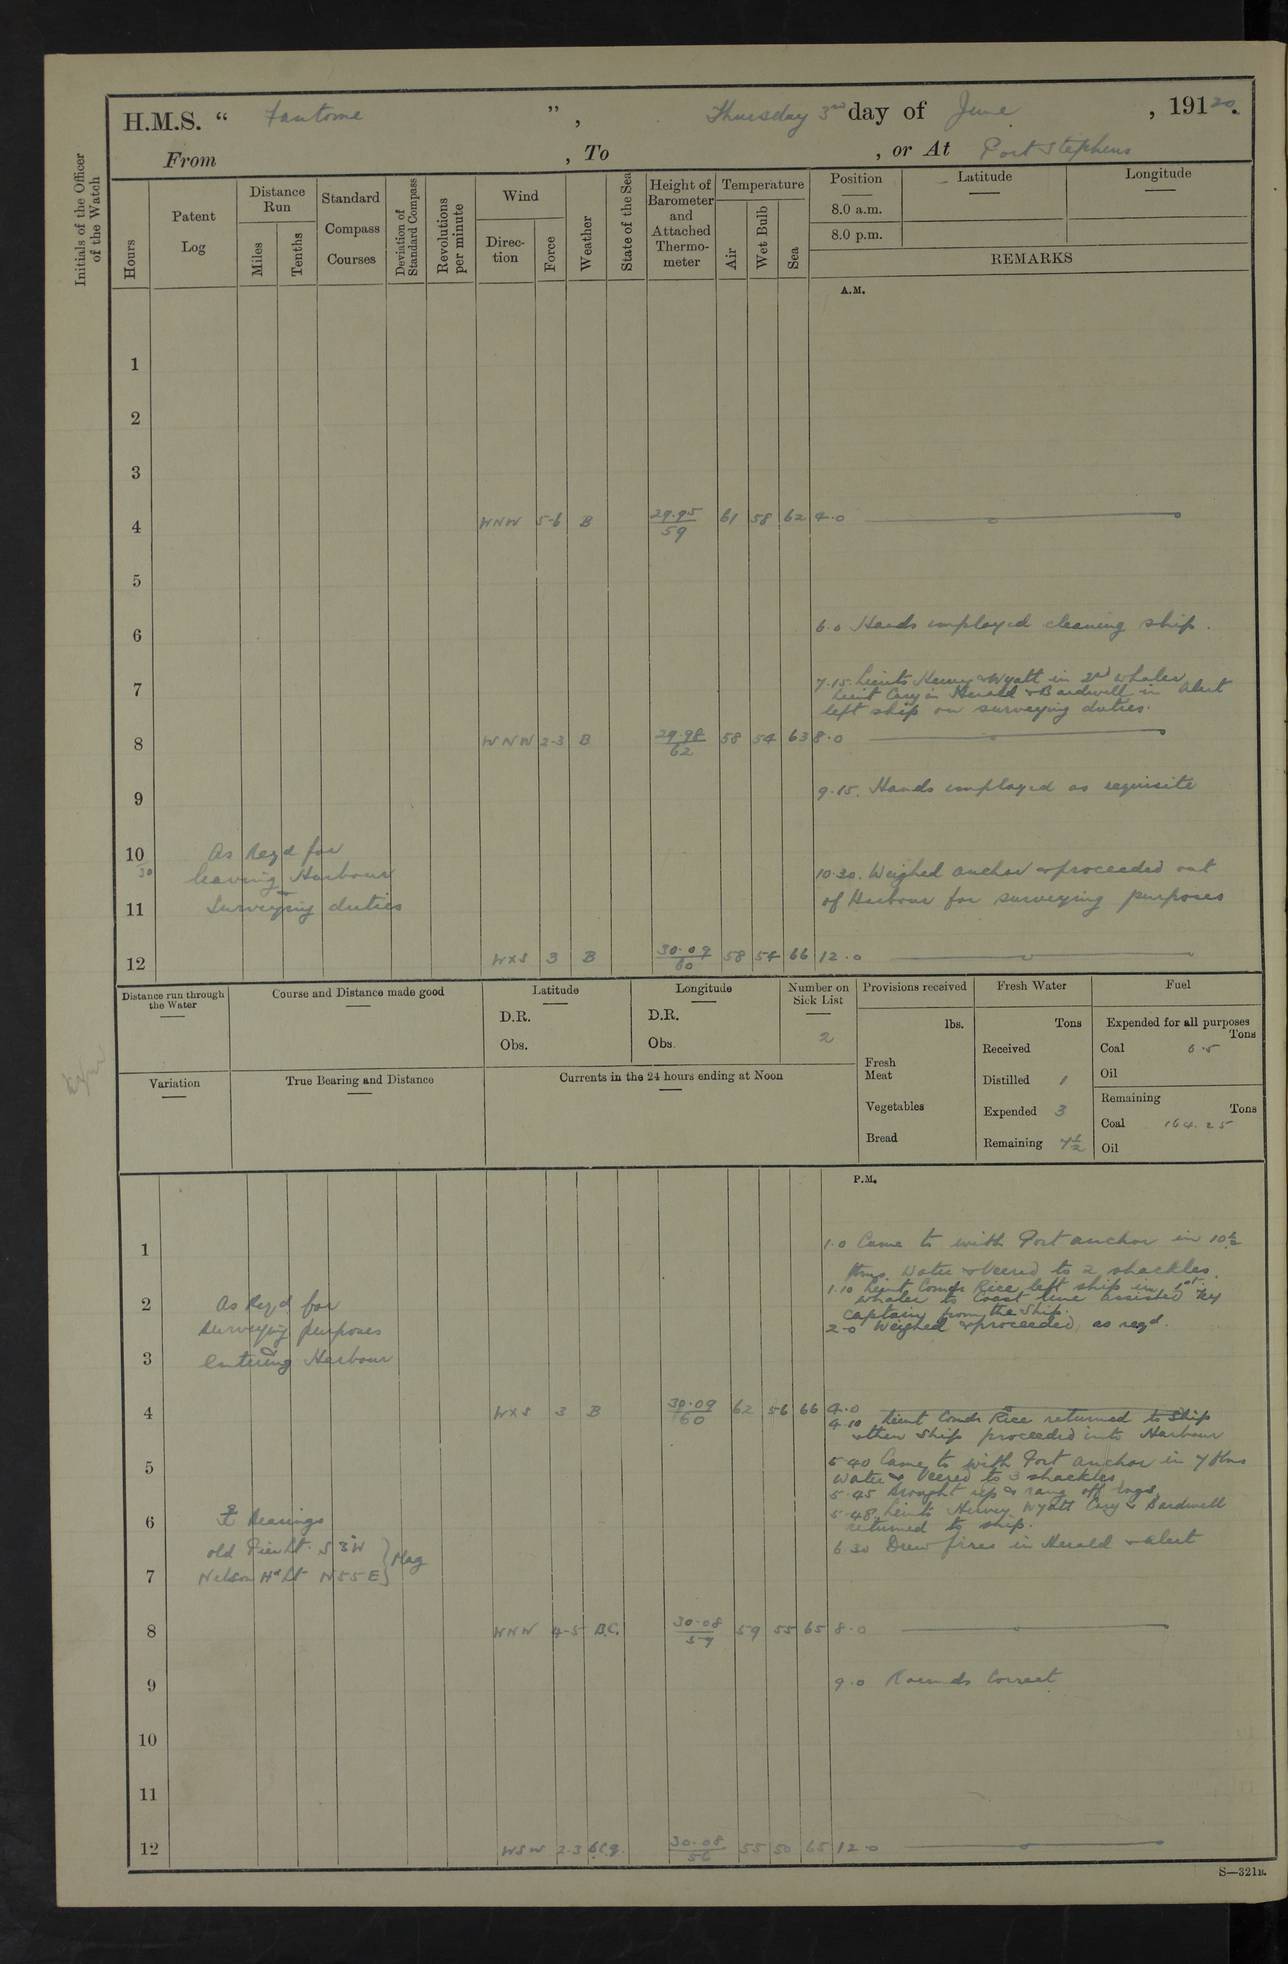 H.M.S. “ Fantome ”, Thursday 3rd day of June, 19120.
From , To , or At Port Stephens
Initials of the Officer of the Watch
Hours
Patent Log
Distance Run
Miles
Tenths
Standard Compass Courses
Deviation of Standard Compass
Revolutions per minute
Wind
Direction
Force
Weather
State of the Sea
Height of Barometer and Attached Thermometer
Temperature
Air
Wet Bulb
Sea
Position
8.0 a.m.
8.0 p.m.
Latitude
Longitude
REMARKS
A.M.
1
2
3
4 WNW 5-6 B 29.95/59 61 58 62 4.0
5
6 6.0 Hands employed cleaning ship.
7 7.15. Lieuts Henry & Wyatt in 2nd whaler
Lieut Cary in Herald & Bardwell in Alert
left ship on surveying duties.
8 WNW 2-3 B 29.98/62 58 54 63 8.0
9 9.15. Hands employed as requisite
10 As Reqd for
30 leaving Harbour 10.30. Weighed anchor & proceeded out
11 Surveying duties of Harbour for surveying purposes
12 WXS 3 B 30.09/60 58 54 66 12.0
Distance run through the Water
Course and Distance made good
Latitude
D.R.
Obs.
Longitude
D.R.
Obs.
Number on Sick List
2
Provisions received
lbs.
Fresh Meat
Vegetables
Bread
Fresh Water
Tons
Received
Distilled 1
Expended 3
Remaining 7½
Fuel
Expended for all purposes
Tons
Coal 6.5
Oil
Remaining
Tons
Coal 164.25
Oil
Variation
True Bearing and Distance
Currents in the 24 hours ending at Noon
P.M.
1 1.0 Came to with Port anchor in 10½
fms. Water & veered to 2 shackles.
1.10 Lieut Comdr Rice left ship in 1st
whaler to Coast line assisted by
2 As Reqd for captain from the ship.
Surveying purposes 2.0 Weighed & proceeded, as reqd.
3 & entering Harbour
4 WXS 3 B 30.09/60 62 56 66 4.0
4.10 Lieut Comdr Rice returned to Ship
& then Ship proceeded into Harbour
5 5.40 Came to with Port anchor in 7 fms
water & veered to 3 shackles
5.45 Brought up & rang off
5.48. Lieuts Henry Wyatt Cary & Bardwell
6 Bearings returned to ship.
old Pier Lt. S 3 W 6.30 Drew fires in Herald & Alert
7 Nelson Hd Lt N 55 E } Mag
8 WNW 4-5 B.C. 30.08/57 59 55 65 8.0
9 9.0 Rounds Correct
10
11
12 WSW 2-3 b.c.q. 30.08/56 55 50 65 12.0
S—321B.